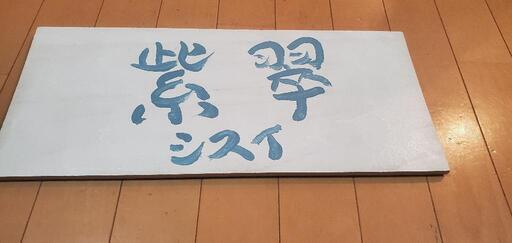 紫翠
シスイ